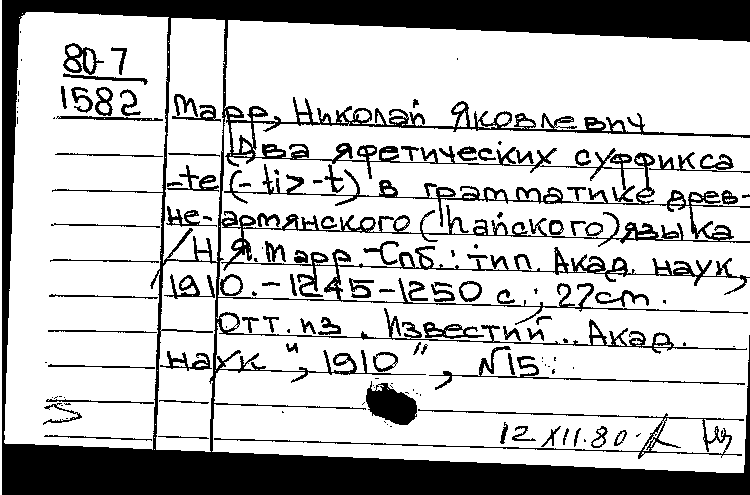 80-7
1582
Марр, Николай Яковлевич
Два яфетических суффикса
-te (-ti>-t) в грамматике древ-
не-армянского (hайского) языка
/Н. Я. Марр.-Спб.: тип. Акад. наук,
1910.-1245-1250 с.; 27cm.
Отт. из „Известий... Акад.
наук", 1910", №15.
12 XII.80.